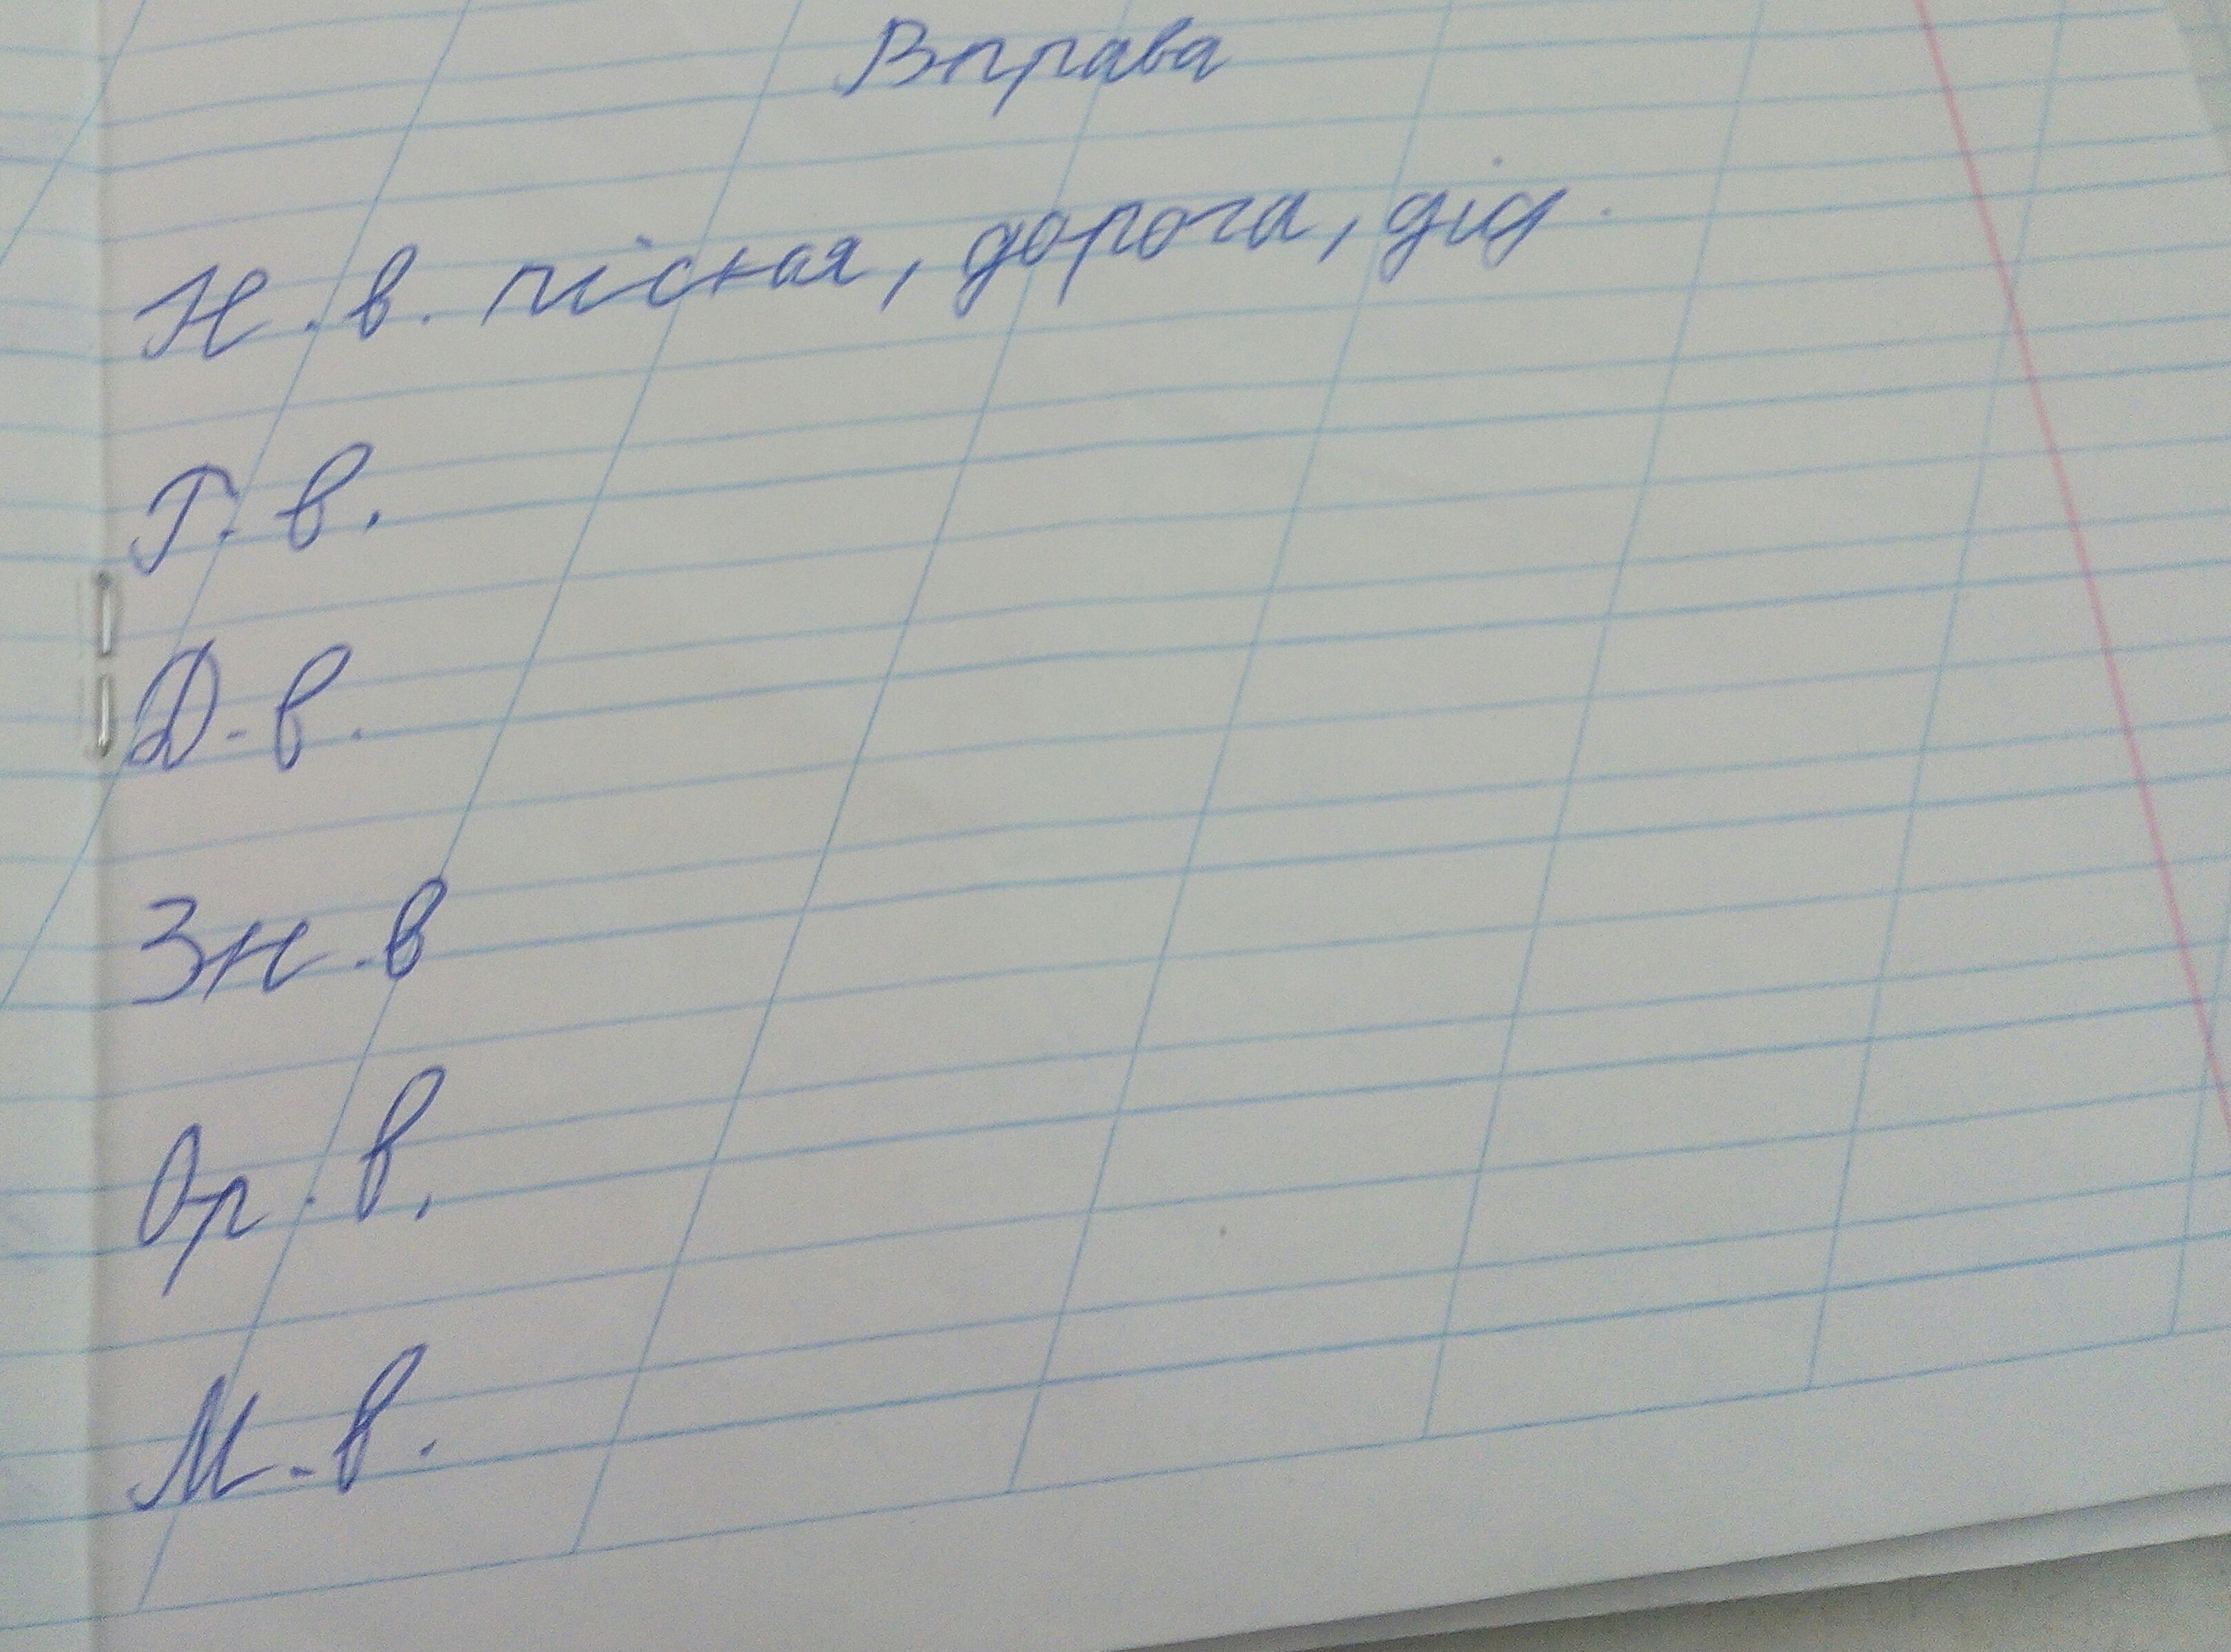 Вправа
Н.в. піская, дорога, дід.
Г.в.
Д.в.
Зн.в
Ор.в.
М.в.